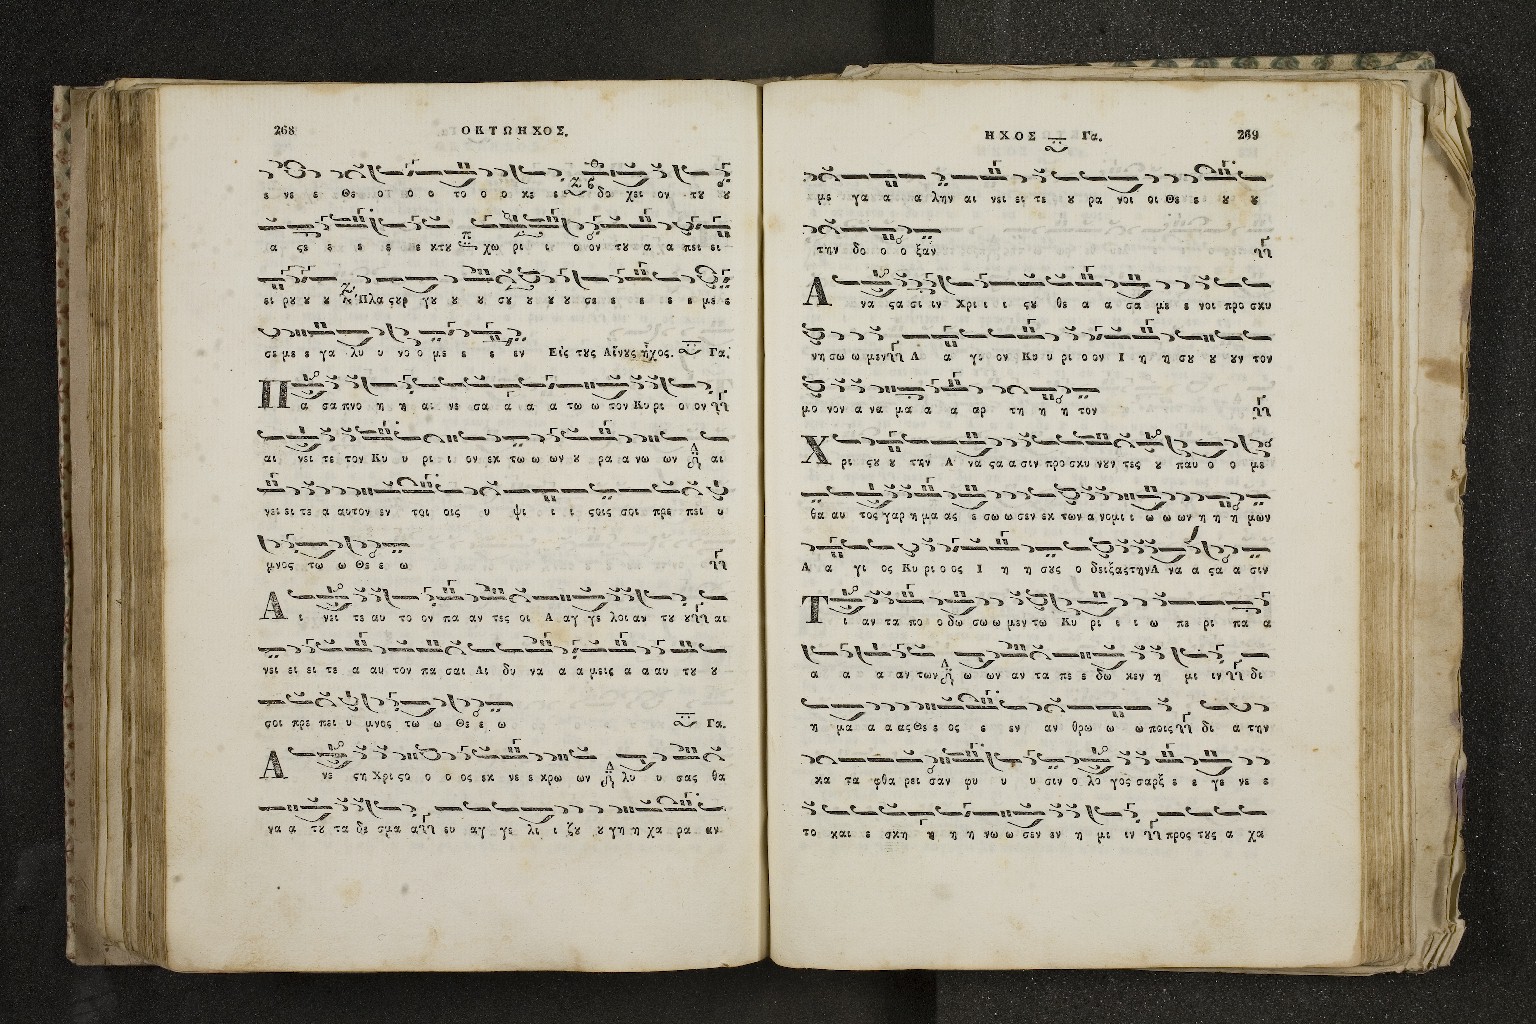 268 ΟΚΤΩΗΧΟΣ.
ε νε ε Θε ο ο ο το ο ο κε ε δο χει ον τȣ ȣ
α ςε ε ε ε ε κτȣ χω ρι ι ο ον τȣ α α πει ει
ει ρȣ ȣ ȣ Πλα ςȣρ γȣ ȣ ȣ σȣ ȣ ȣ ȣ σε ε ε ε ε με ε
σε με ε γα λυ υ νο ο με ε ε εν Εἰς τȣς Αἴνȣς ἦχος. Γα.
Π α σα πνο η η αι νε σα α α α τω ω τον Κυ ρι ο ον
αι νει τε τον Κυ υ ρι ι ον εκ τω ω ων ȣ ρα α νω ων αι
νει ει τε α αυτον εν τοι οις υ ψι ι ι ςοις σοι πρε πει υ
μνος τω ω Θε ε ω
Α ι νει τε αυ το ον πα αν τες οι Α αγ γε λοι αν τȣ ȣ αι
νει ει ει τε α αυ τον πα σαι Αι δυ να α α μεις α α αυ τȣ ȣ
σοι πρε πει υ μνος τω ω Θε ε ω Γα.
Α νε ςη Χρι ςο ο ο ος εκ νε ε κρω ων λυ υ σας θα
να α τȣ τα δε σμα α ευ αγ γε λι ι ζȣ ȣ γη η χα ρα αν
ΗΧΟΣ Γα. 269
με γα α α λην αι νει ει τε ȣ ρα νοι οι Θε ε ȣ ȣ
την δο ο ο ξαν
Α να ςα σι ιν Χρι ι ι ςȣ θε α α σα με ε νοι προ σκυ
νη σω ω μεν Α α γι ον Κυ υ ρι ο ον Ι η η σȣ ȣ ȣν τον
μο νον α να μα α α αρ τη η η τον
Χ ρι ςȣ ȣ την Α να ςα α σιν προ σκυ νȣν τες ȣ παυ ο ο με
θα αυ τος γαρ η μα ας ε σω ω σεν εκ των α νομι ι ω ω ων η η η μων
Α α γι ος Κυ ρι ο ος Ι η η σȣς ο δειξαςτηνΑ να α ςα α σιν
Τ ι αν τα πο ο δω σω ω μεν τω Κυ ρι ε ι ω πε ρι πα α
α α α αν των ω ων αν τα πε ε δω κεν η μι ιν δι
η μα α α ας Θε ε ος ε εν αν θρω ω ω ποις δι α την
κα τα φθα ρει σαν φυ υ υ σιν ο λο γος σαρξ ε ε γε νε ε
το και ε σκη η η η νω ω σεν εν η μι ιν προς τȣς α χα